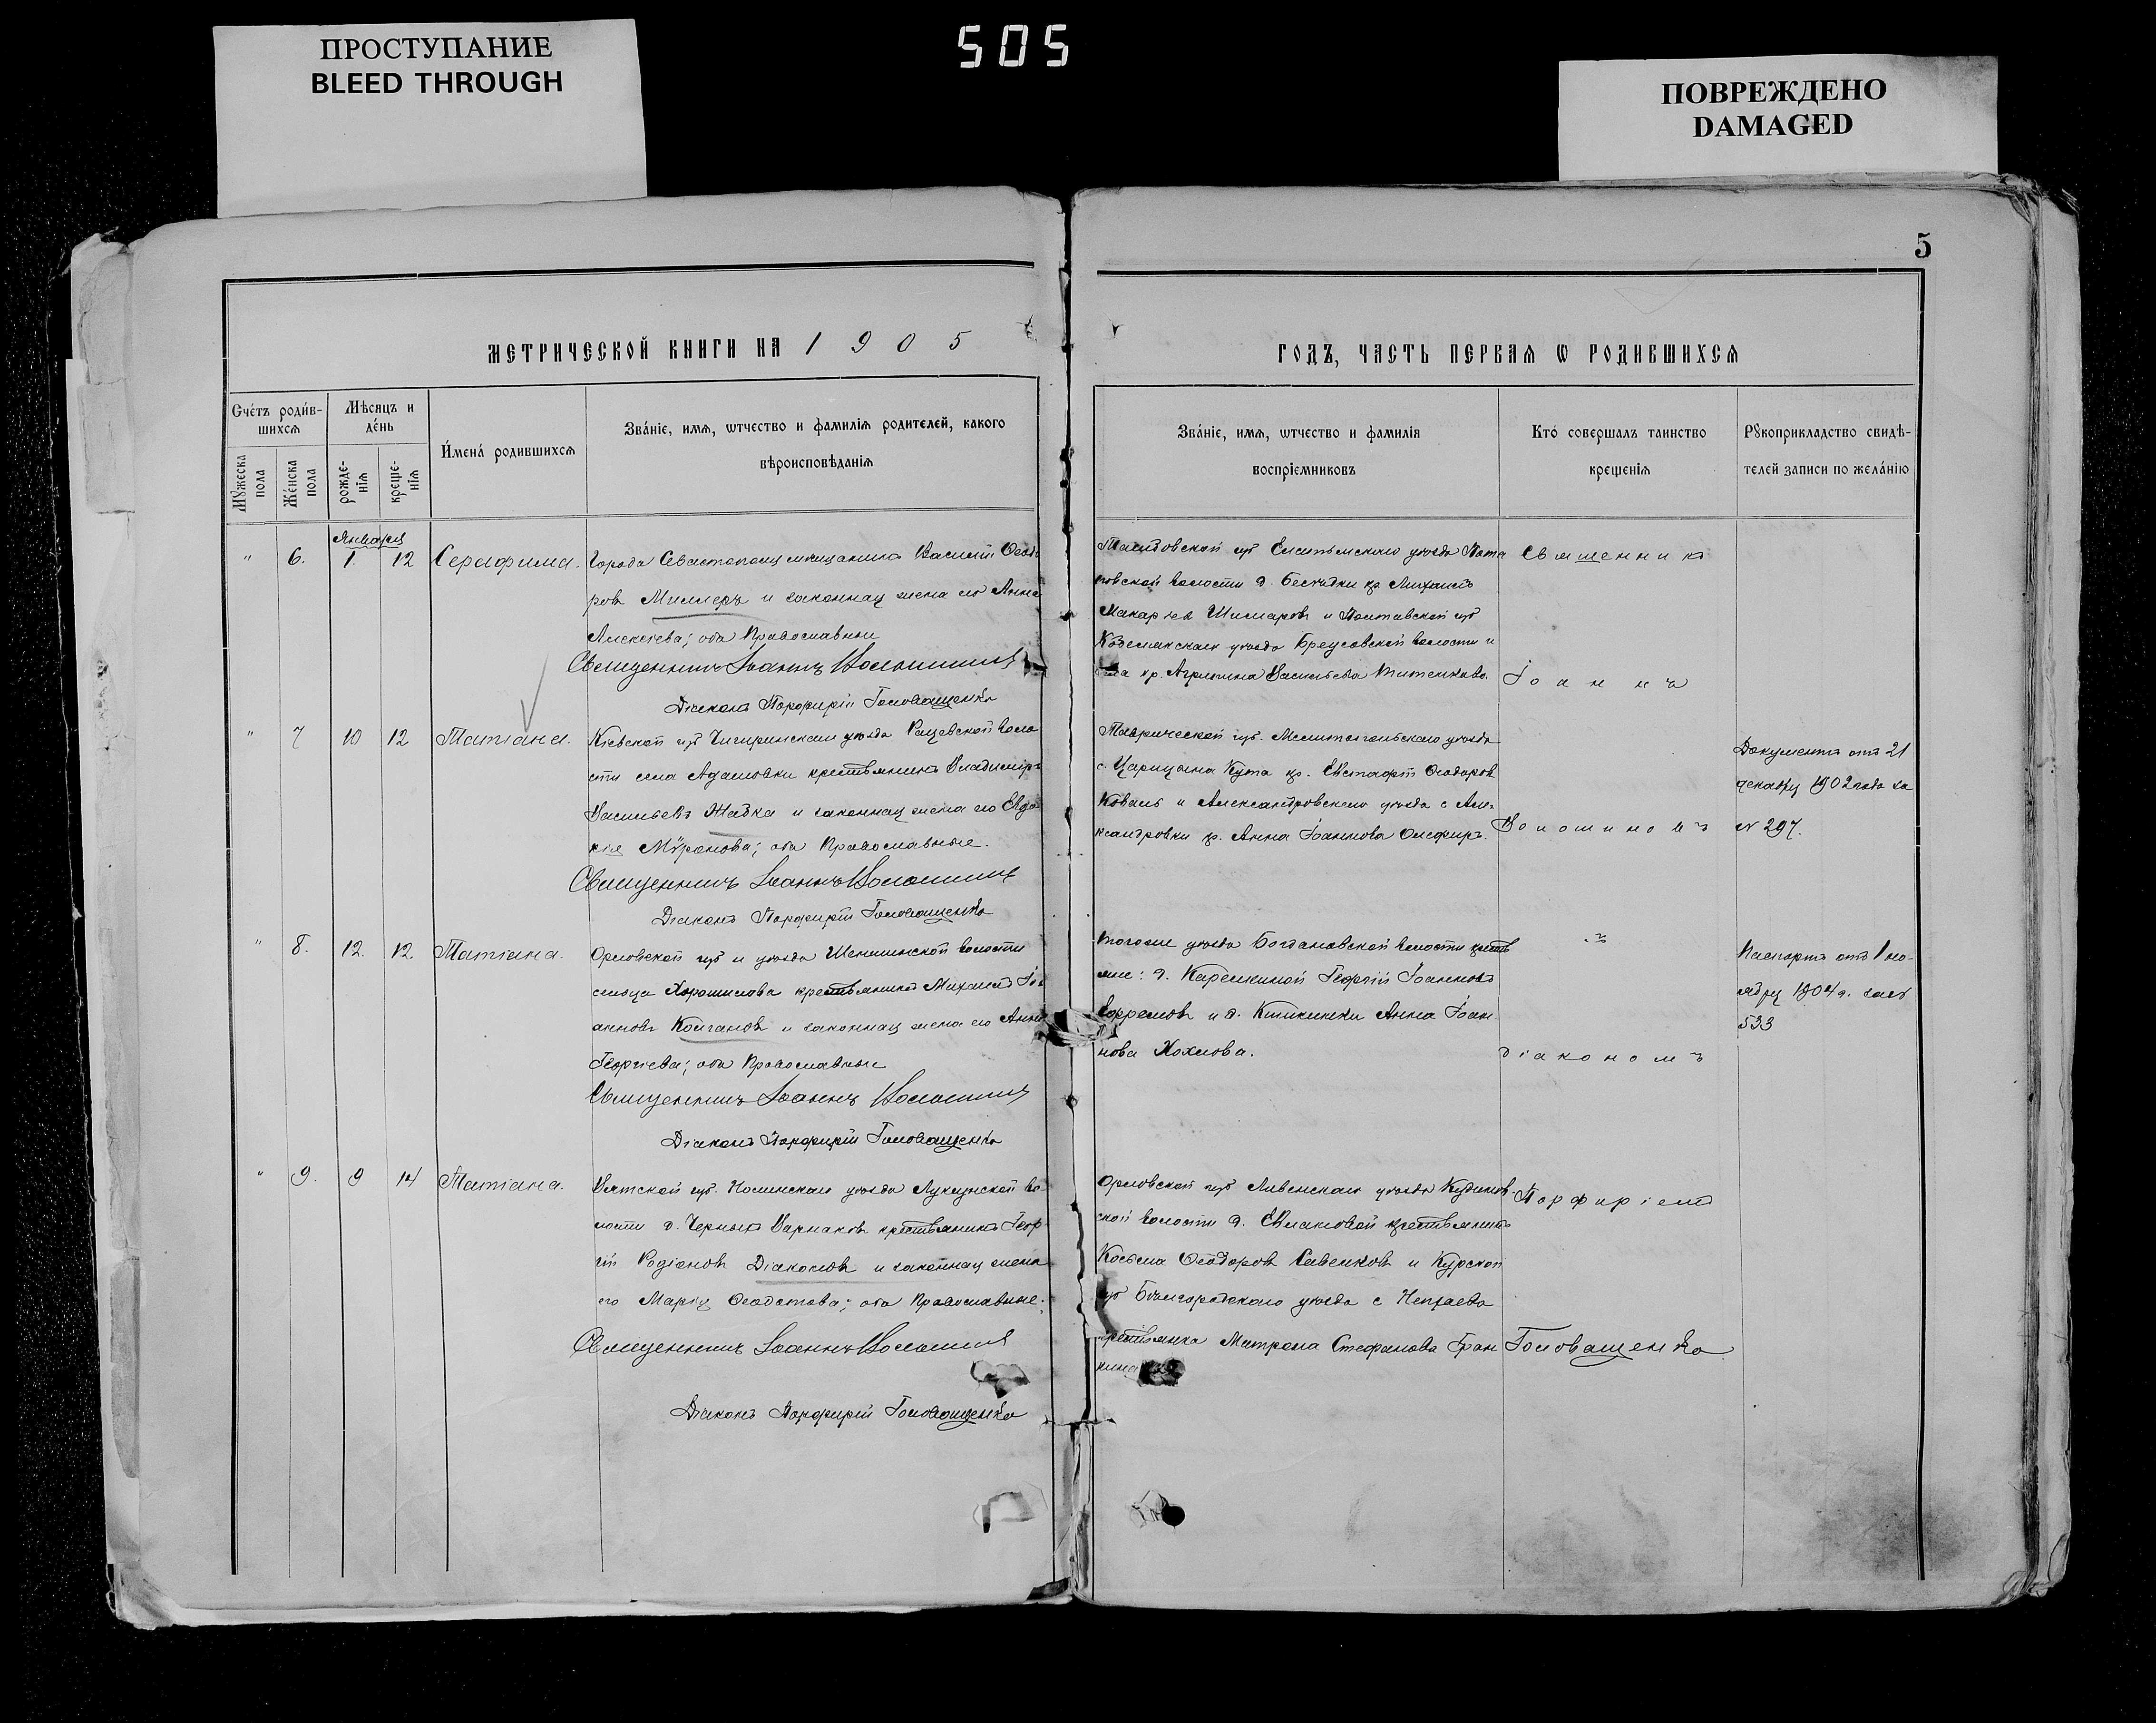 ПРОСТУПАНИЕ
BLEED THROUGH
505
ПОВРЕЖДЕНО
DAMAGED
5
МЕТРИЧЕСКОЙ КНИГИ НА 1905
ГОДЪ, ЧАСТЬ ПЕРВАЯ Ѡ РОДИВШИХСЯ
Счéтъ роди́в-
шихсѧ
Мѣсяцъ и
дéнь
Мꙋжеска
пола
Жéнска
пола
рожде-
нія
креще-
нія
И́мена́ родившихсѧ
Зва́ніе, имѧ, ѿтчество и фамиліѧ родителей, какого
вѣроисповѣданіѧ
Зва́ніе, имѧ, ѿтчество и фамиліѧ
воспріемниковъ
Кто́ совершалъ таинство
крещеніѧ
Рꙋкоприкладство свидѣ-
телей записи по жела́нію
Января
" 6. 1. 12 Серафима.
Города Севастополя мѣщанинъ Василій Ѳеодо
ровъ Миллеръ и законная жена его Анна
Алексѣева; оба Православные
Священникъ Іоаннъ Волошинъ
Діаконъ Порфирій Головащенко
уѣзда
волости д. кр. Михаилъ
Макаріевъ и Полтавской губ
уѣзда волости
кр. Агрипина Васильева
Священникъ
Іоаннъ
" 7 10 12 Татіана.
Кіевской губ Чигиринскаго уѣзда Рацевской воло
сти села Адамовки крестьянинъ Владиміръ
Васильевъ Жабка и законная жена его Евдо
кія Мѵронова; оба Православные.
Священникъ Іоаннъ Волошинъ
Діаконъ Порфирій Головащенко
Таврической губ. Мелитопольскаго уѣзда
с. Царицына Кута кр. Евстафій Ѳеодоровъ
Коваль и Александровскаго уѣзда с Але-
ксандровки кр. Анна Іоаннова Олефиръ.
Волошиномъ
Документъ отъ 21
декабря 1902 года за
№ 297.
" 8. 12. 12. Татіана.
Орловской губ и уѣзда волости
сельца Хорошилова крестьянинъ Михаилъ Іо
анновъ Колгановъ и законная жена его Анна
Георгіева; оба Православные
Священникъ Іоаннъ Волошинъ
Діаконъ Порфирій Головащенко
Того же уѣзда Богдановской волости крестья
не: д. Георгій Іоанновъ
Ефремовъ и д. Анна Іоан
нова Хохлова.
съ
діакономъ
Паспортъ отъ 1 но-
ября 1904 г. за №
533
" 9. 9 14 Татіана.
Вятской губ. Нолинскаго уѣзда во
лости д. крестьянинъ Геор
гій Родіоновъ Діаконовъ и законная жена
его Марія Ѳеодотова; оба Православные.
Священникъ Іоаннъ Волошинъ
Діаконъ Порфирій Головащенко
Орловской губ Ливенскаго уѣзда
ской волости д. Евлановой крестьянинъ
Косьма Ѳеодоровъ Савенковъ и Курской
губ Бѣлгородскаго уѣзда с
крестьянка Матрона Стефанова
Порфиріемъ
Головащенко